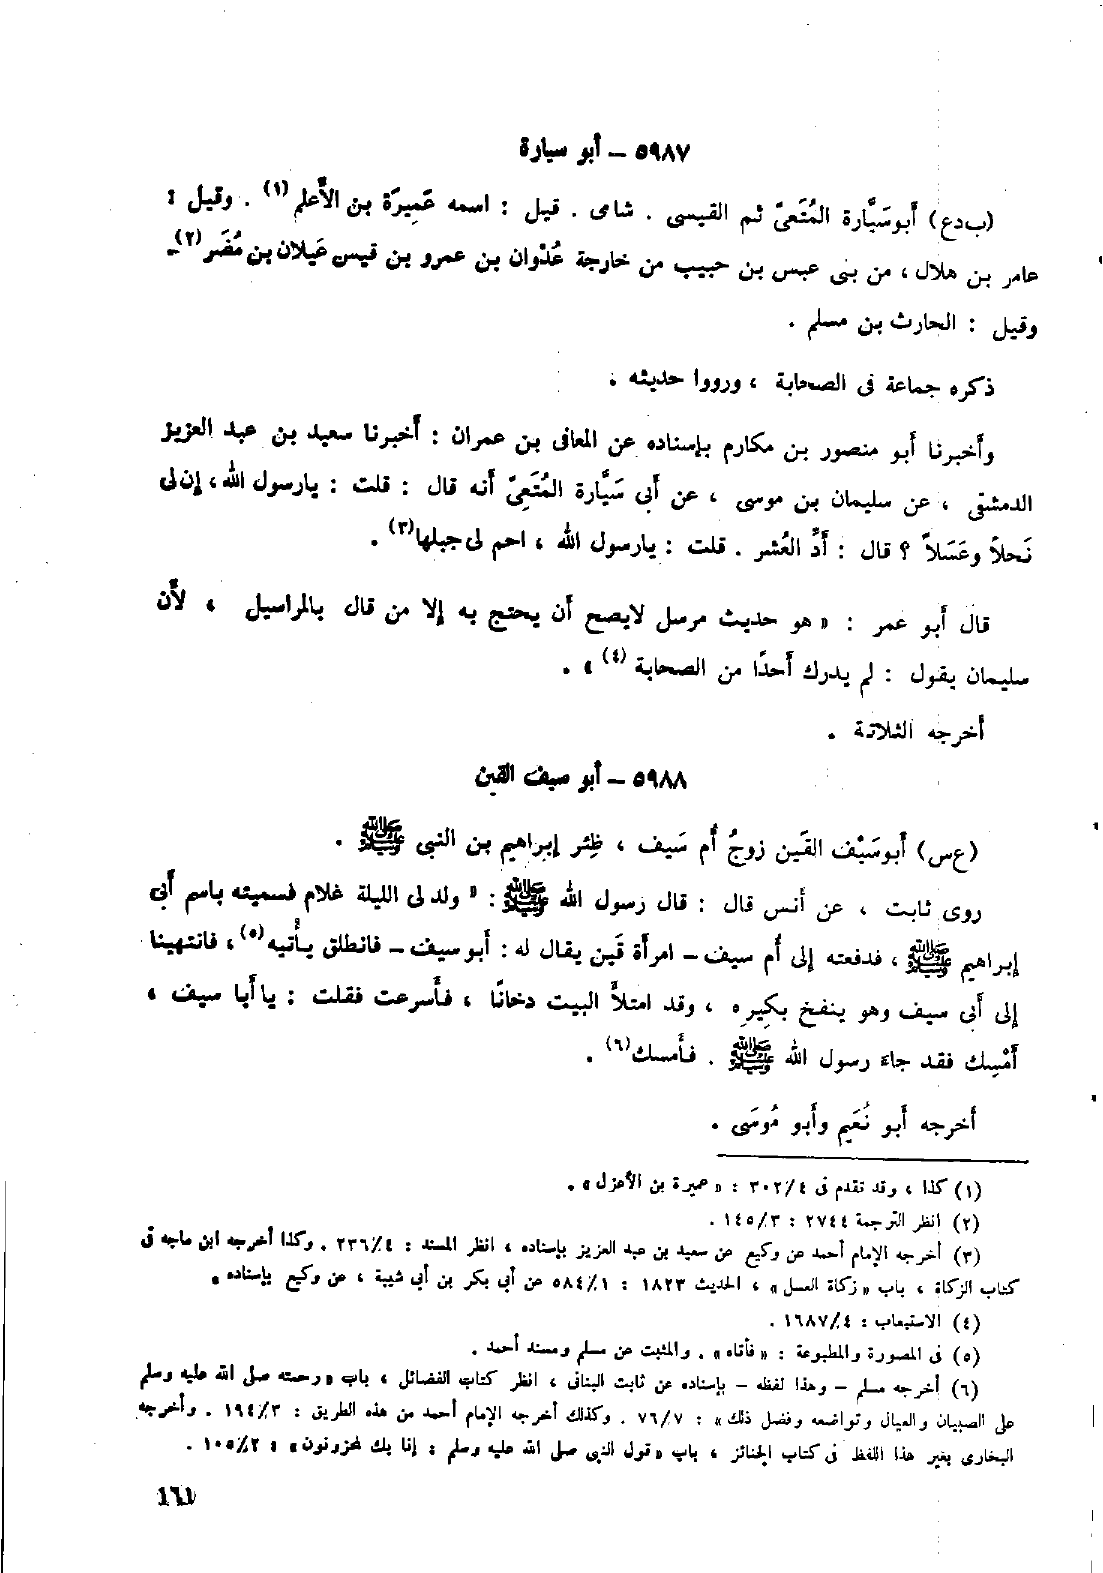 ٥٩٨٧ – أبو سيارة
(ب د ع) أَبو سَيَّارة المُتَعىّ ثم القيسى . شامى . قيل : اسمه عَمِيرَة بن الأَعلم (١) . وقيل :
عامر بن هلال ، من بنى عبس بن حبيب من خارجة عَدْوان بن عمرو بن قيس عَيلان بن مُضَر (٢) .
وقيل : الحارث بن مسلم .
ذكره جماعة فى الصحابة ، ورووا حديثه .
وأَخبرنا أَبو منصور بن مكارم بإسناده عن المعافى بن عمران : أَخبرنا سعيد بن عبد العزيز
الدمشقى ، عن سليمان بن موسى ، عن أَبى سَيَّارة المُتَعِىّ أَنه قال : قلت : يا رسول الله ، إن لى
نَحلاً وعَسَلاً ؟ قال : أَدِّ العُشر . قلت : يا رسول الله ، احم لى جبلها (٣) .
قال أَبو عمر : « هو حديث مرسل لا يصح أَن يحتج به إلا من قال بالمراسيل ، لأَن
سليمان يقول : لم يدرك أَحدًا من الصحابة (٤) » .
أخرجه الثلاثة .
٥٩٨٨ – أبو سيف القين
(ع س) أَبو سَيْف القَين زوجُ أُم سَيف ، ظِئر إبراهيم بن النبى ﷺ .
روى ثابت ، عن أَنس قال : قال رسول الله ﷺ : « ولد لى الليلة غلام فسميته باسم أَبى
إبراهيم ﷺ ، فدفعته إلى أُم سيف – امرأَة قَين يقال له : أَبو سيف – فانطلق يأْتيه (٥) ، فانتهينا
إلى أَبى سيف وهو ينفخ بكِيرِه ، وقد امتلأَ البيت دخانًا ، فأَسرعت فقلت : يا أَبا سيف ،
أَمْسِك فقد جاءَ رسول الله ﷺ . فأَمسك (٦) .
أَخرجه أَبو نُعَيم وأَبو مُوسَى .
(١) كذا ، وقد تقدم فى ٣٠٢/٤ : « عميرة بن الأعزل » .
(٢) انظر الترجمة ٢٧٤٤ : ١٤٥/٣ .
(٣) أخرجه الإمام أحمد عن وكيع عن سعيد بن عبد العزيز بإسناده ، انظر المسند : ٢٣٦/٤ . وكذا أخرجه ابن ماجه فى
كتاب الزكاة ، باب « زكاة العسل » ، الحديث ١٨٢٣ : ٥٨٤/١ عن أبى بكر بن أبى شيبة ، عن وكيع بإسناده .
(٤) الاستيعاب : ١٦٨٧/٤ .
(٥) فى المصورة والمطبوعة : « فأتاه » . والمثبت عن مسلم ومسند أحمد .
(٦) أخرجه مسلم – وهذا لفظه – بإسناده عن ثابت البنانى ، انظر كتاب الفضائل ، باب « رحمته صلى الله عليه وسلم
على الصبيان والعيال وتواضعه وفضل ذلك » : ٧٦/٧ . وكذلك أخرجه الإمام أحمد من هذه الطريق : ١٩٤/٣ . وأخرجه
البخارى بغير هذا اللفظ فى كتاب الجنائز ، باب « قول النبى صلى الله عليه وسلم : إنا بك لمحزونون » : ١٠٥/٢ .
١٦١